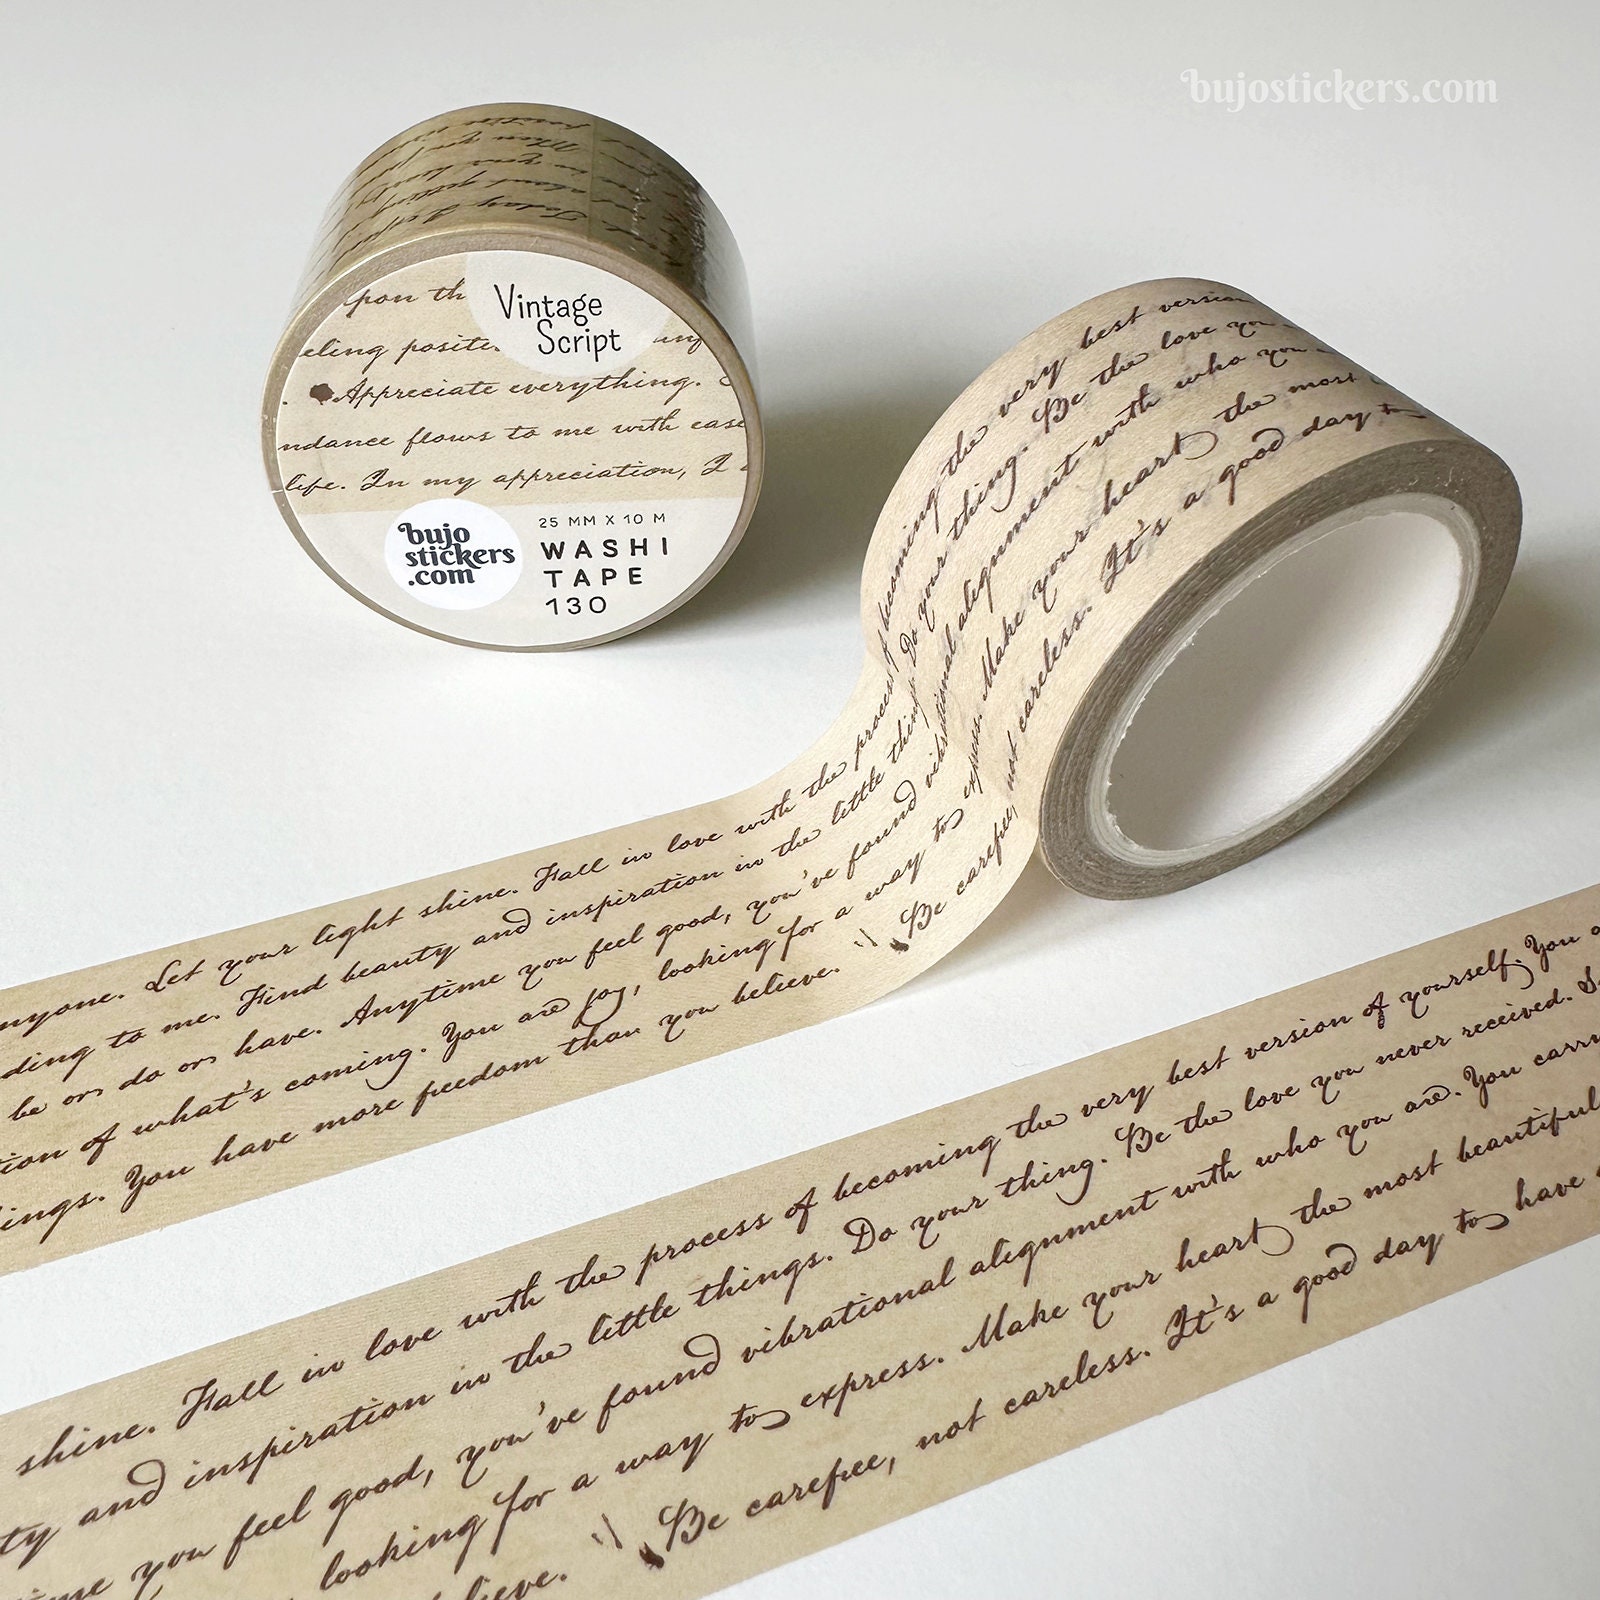 bujostickers.com
Vintage
Script
pon th
eling positi
Appreciate everything.
ndance flows to me with ease
life. In my appreciation, I
bujo
stickers
.com
25 MM X 10 M
WASHI
TAPE
130
the very best version
Be the love you
with who you
the most
good day to
nyone. Let your light shine. Fall in love with the process of becoming the very best version
ding to me. Find beauty and inspiration in the little things. Do your thing. Be the love you
be or do or have. Anytime you feel good, you've found vibrational alignment with who you
tion of what's coming. You are joy, looking for a way to express. Make your heart the most
ings. You have more freedom than you believe. :) Be carefree, not careless. It's a good day to
shine. Fall in love with the process of becoming the very best version of yourself. You
ty and inspiration in the little things. Do your thing. Be the love you never received. S
time you feel good, you've found vibrational alignment with who you are. You carry
looking for a way to express. Make your heart the most beautiful
lieve. :) Be carefree, not careless. It's a good day to have